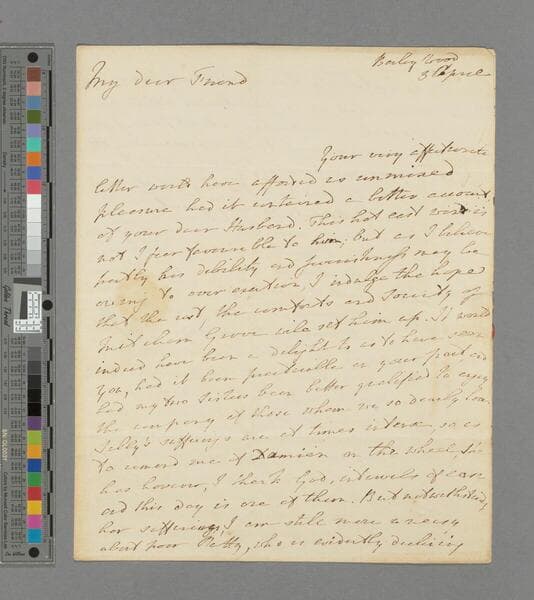 Barley Wood
3 April
My dear Friend
Your very affectionate
letter would have afforded us unmixed
pleasure had it contained a better account
of your dear Husband. This hot east wind is
not I fear favourable to him; but as I believe
partly his debility and feverishness may be
owing to over exertion, I indulge the hope
that the rest, the comforts and Society of
Mitcham Grove will set him up. It would
indeed have been a delight to us to have seen
you, had it been practicable on your part and
had my two Sisters been better qualified to enjoy
the company of those whom we so dearly love
Sally's sufferings are at times intense, so as
to remind me of Damien on the wheel, she
has however, I thank God, intervals of ease
and this day is one of them. But notwithstanding
her sufferings, I am still more uneasy
about poor Patty, who is evidently declining